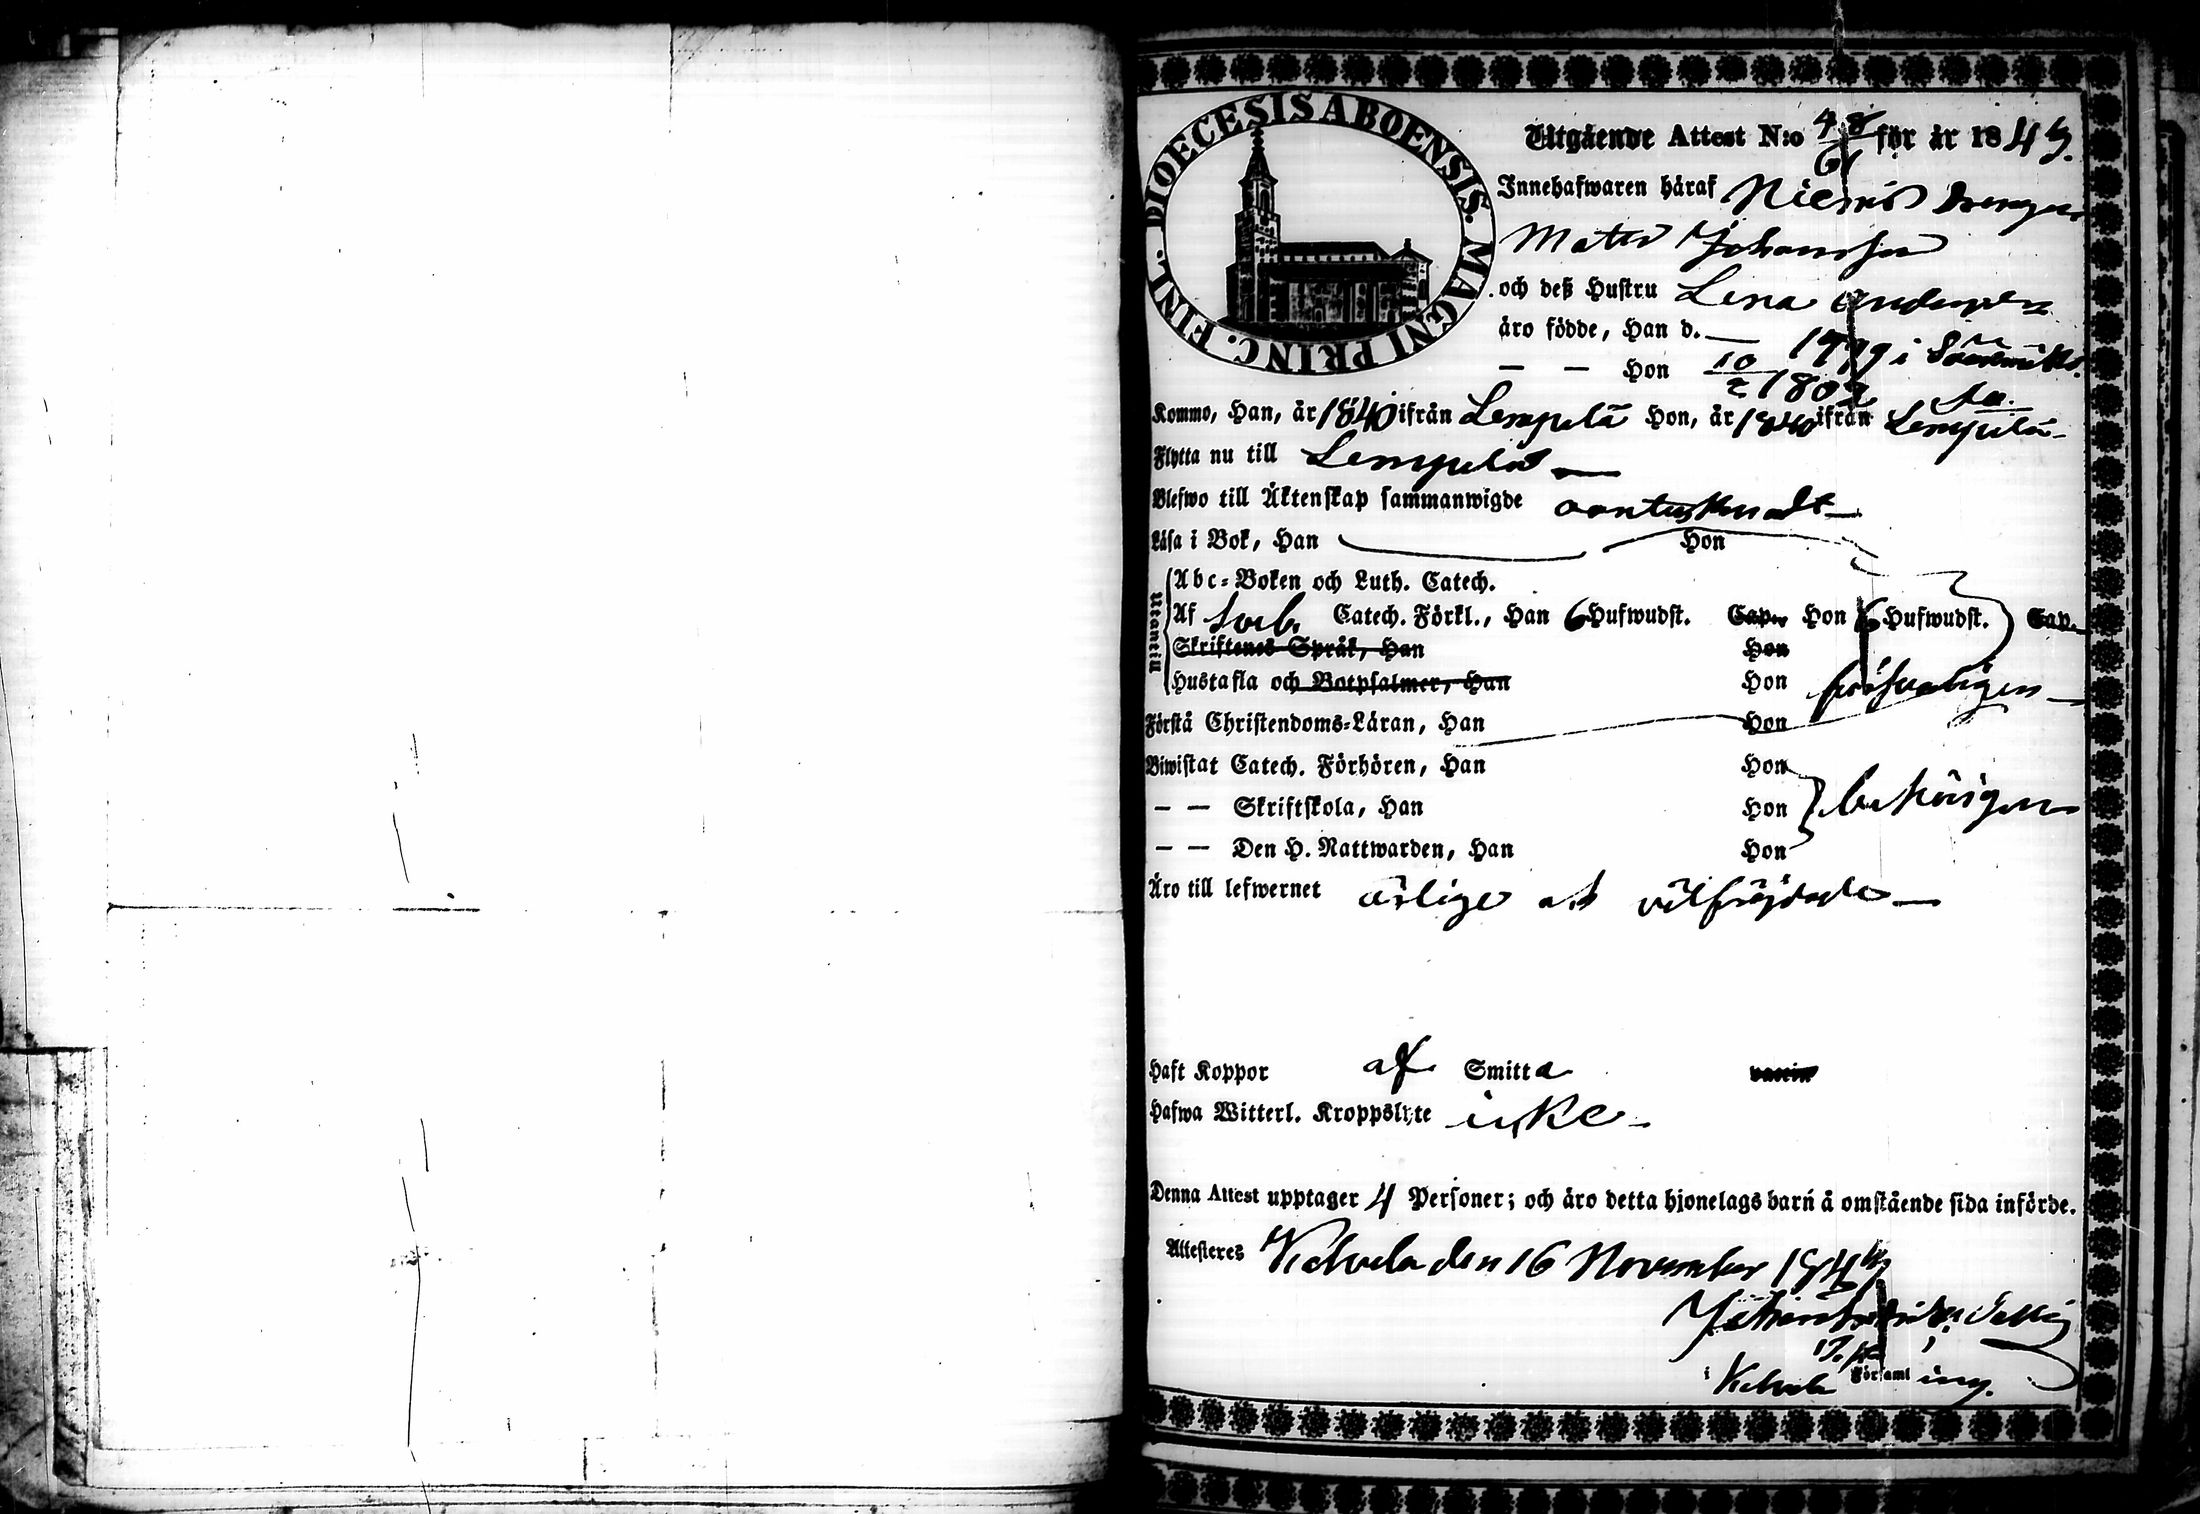 DIOECESIS ABOENSIS. MAGNI PRINC. FINL.
Utgående Attest N:o 48/61 för år 184
Innehafwaren häraf
Matts Johansson
och deß Hustru Lena
äro födde, Han d. — 1799 i
— — Hon 10/2 1802
Kommo, Han, år 1840 ifrån Lempelä Hon, år 1840 ifrån Lempelä
Flytta nu till Lempelä —
Blefwo till Äktenskap sammanwigde
Läsa i Bok, Han Hon
Utantill
Abc-Boken och Luth. Catech.
Af Sveb. Catech. Förkl., Han 6 Hufwudst. Cap. Hon 6 Hufwudst. Cap.
Skriftenes Språk, Han Hon
Hustafla och Botpsalmer, Han Hon försvarligen —
Förstå Christendoms-Läran, Han Hon
Biwistat Catech. Förhören, Han Hon
— — Skriftskola, Han Hon behörigen
— — Den H. Nattwarden, Han Hon
Äro till lefwernet ärlige och välfrejdade —
Haft Koppor af Smitta vaccin
Hafwa Witterl. Kroppslyte icke —
Denna Attest upptager 4 Personer; och äro detta hjonelags barn å omstående sida införde.
Attesteres Kelvelä den 16 November 184
i Församl ing.